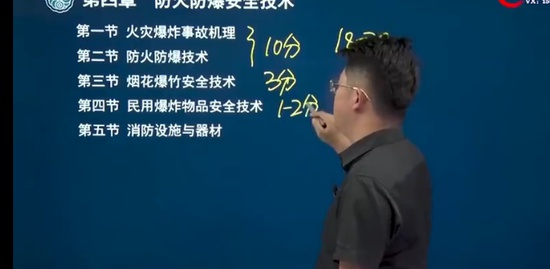 第四章 防火防爆安全技术
第一节 火灾爆炸事故机理
第二节 防火防爆技术
10分
第三节 烟花爆竹安全技术
3分
第四节 民用爆炸物品安全技术
1-2分
第五节 消防设施与器材